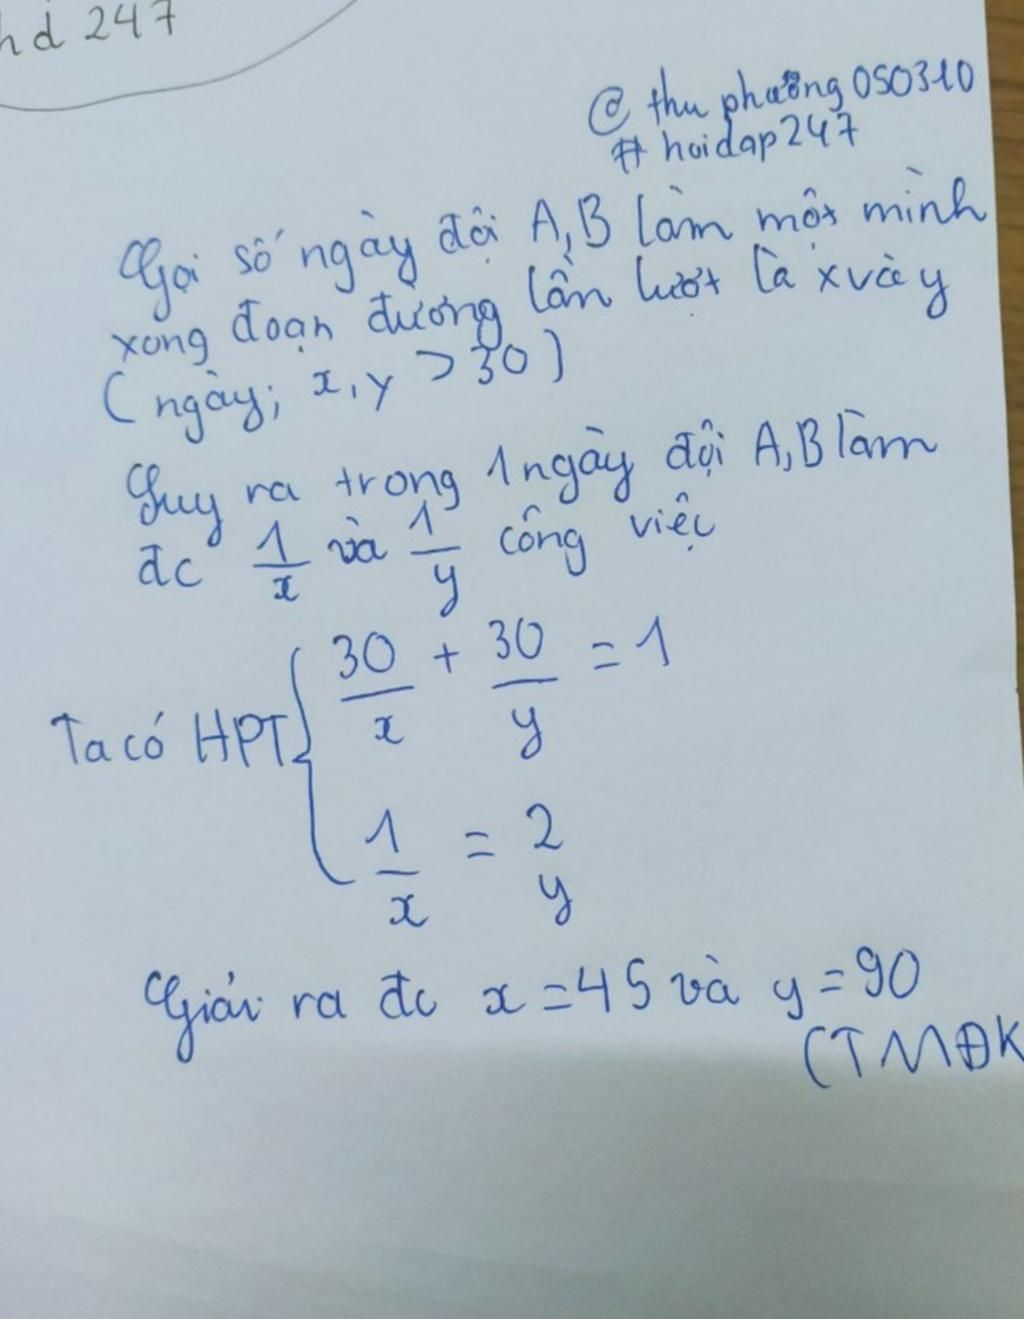 hd 247
@ thu phương 050310
# hoidap247
Gọi số ngày đội A,B làm một mình
xong đoạn đường lần lượt là x và y
(ngày; x, y > 30)
Suy ra trong 1 ngày đội A,B làm
đc 1/x và 1/y công việc
Ta có HPT { 30/x + 30/y = 1
1/x = 2/y
Giải ra đc x = 45 và y = 90
(TMĐK